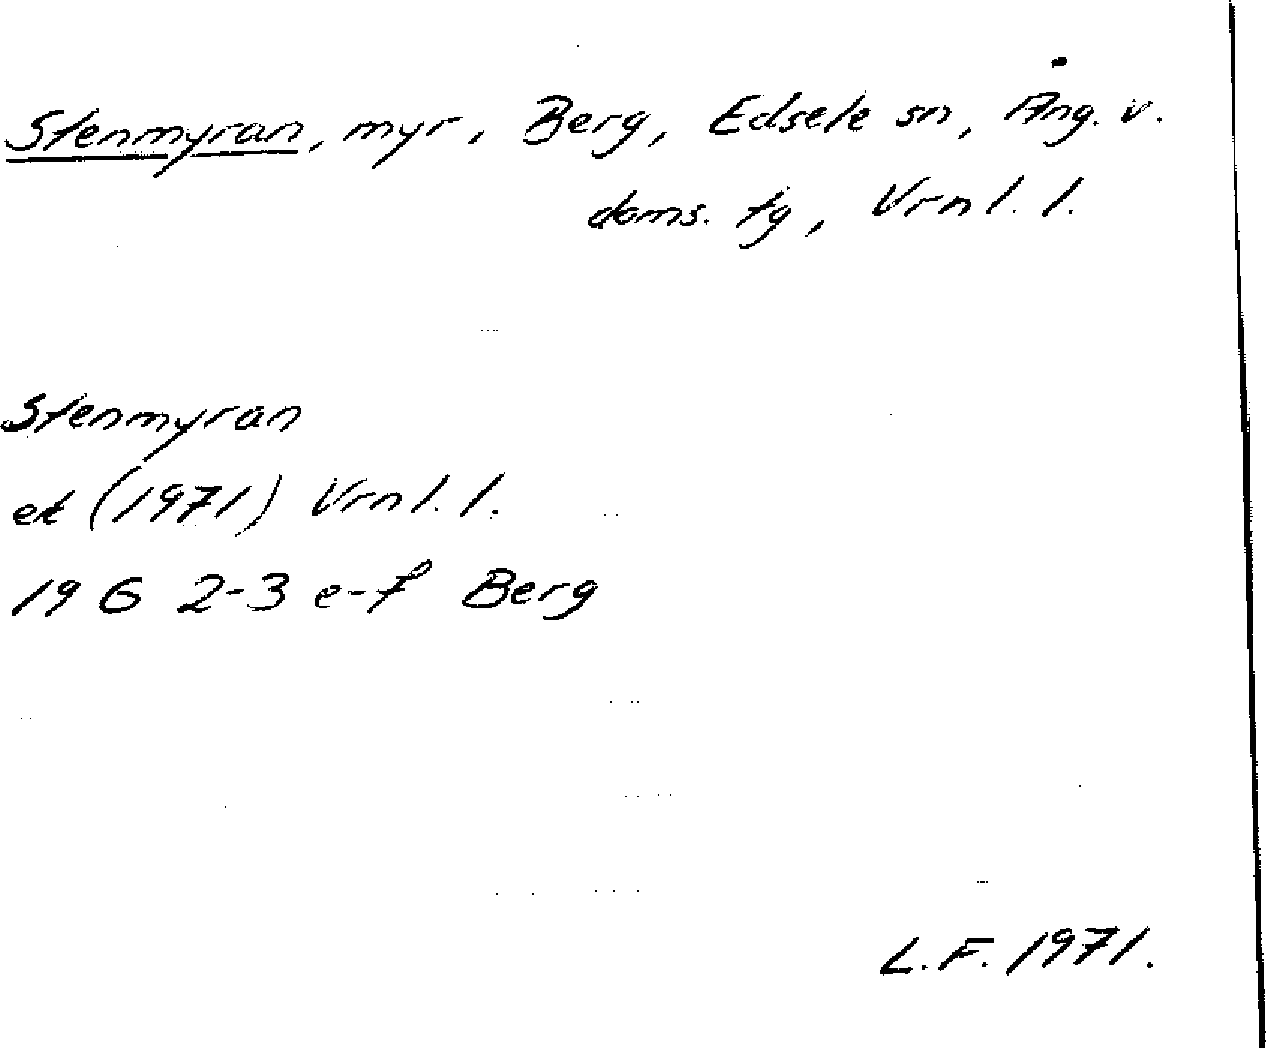 Stenmyran, myr, Berg, Edsele sn, Ång. v.
doms. tg, Vrnl. l.
Stenmyran
ek (1971) Vrnl. l.
19 G 2-3 e-f Berg
L.F. 1971.